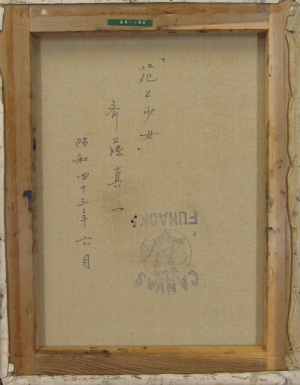 「花と少女」
斎藤真一
昭和四十三年六月
FUNAOKA
CANVAS